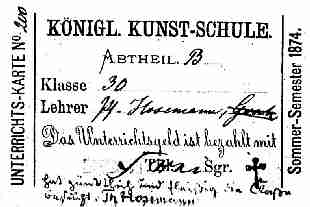 UNTERRICHTS-KARTE No. 200
KÖNIGL. KUNST-SCHULE.
ABTHEIL. B
Klasse 30
Lehrer Hosemann,
Das Unterrichtsgeld ist bezahlt mit
Sgr.
hat und fleißig die Classe
besucht. Th Hosemann
Sommer-Semester 1874.